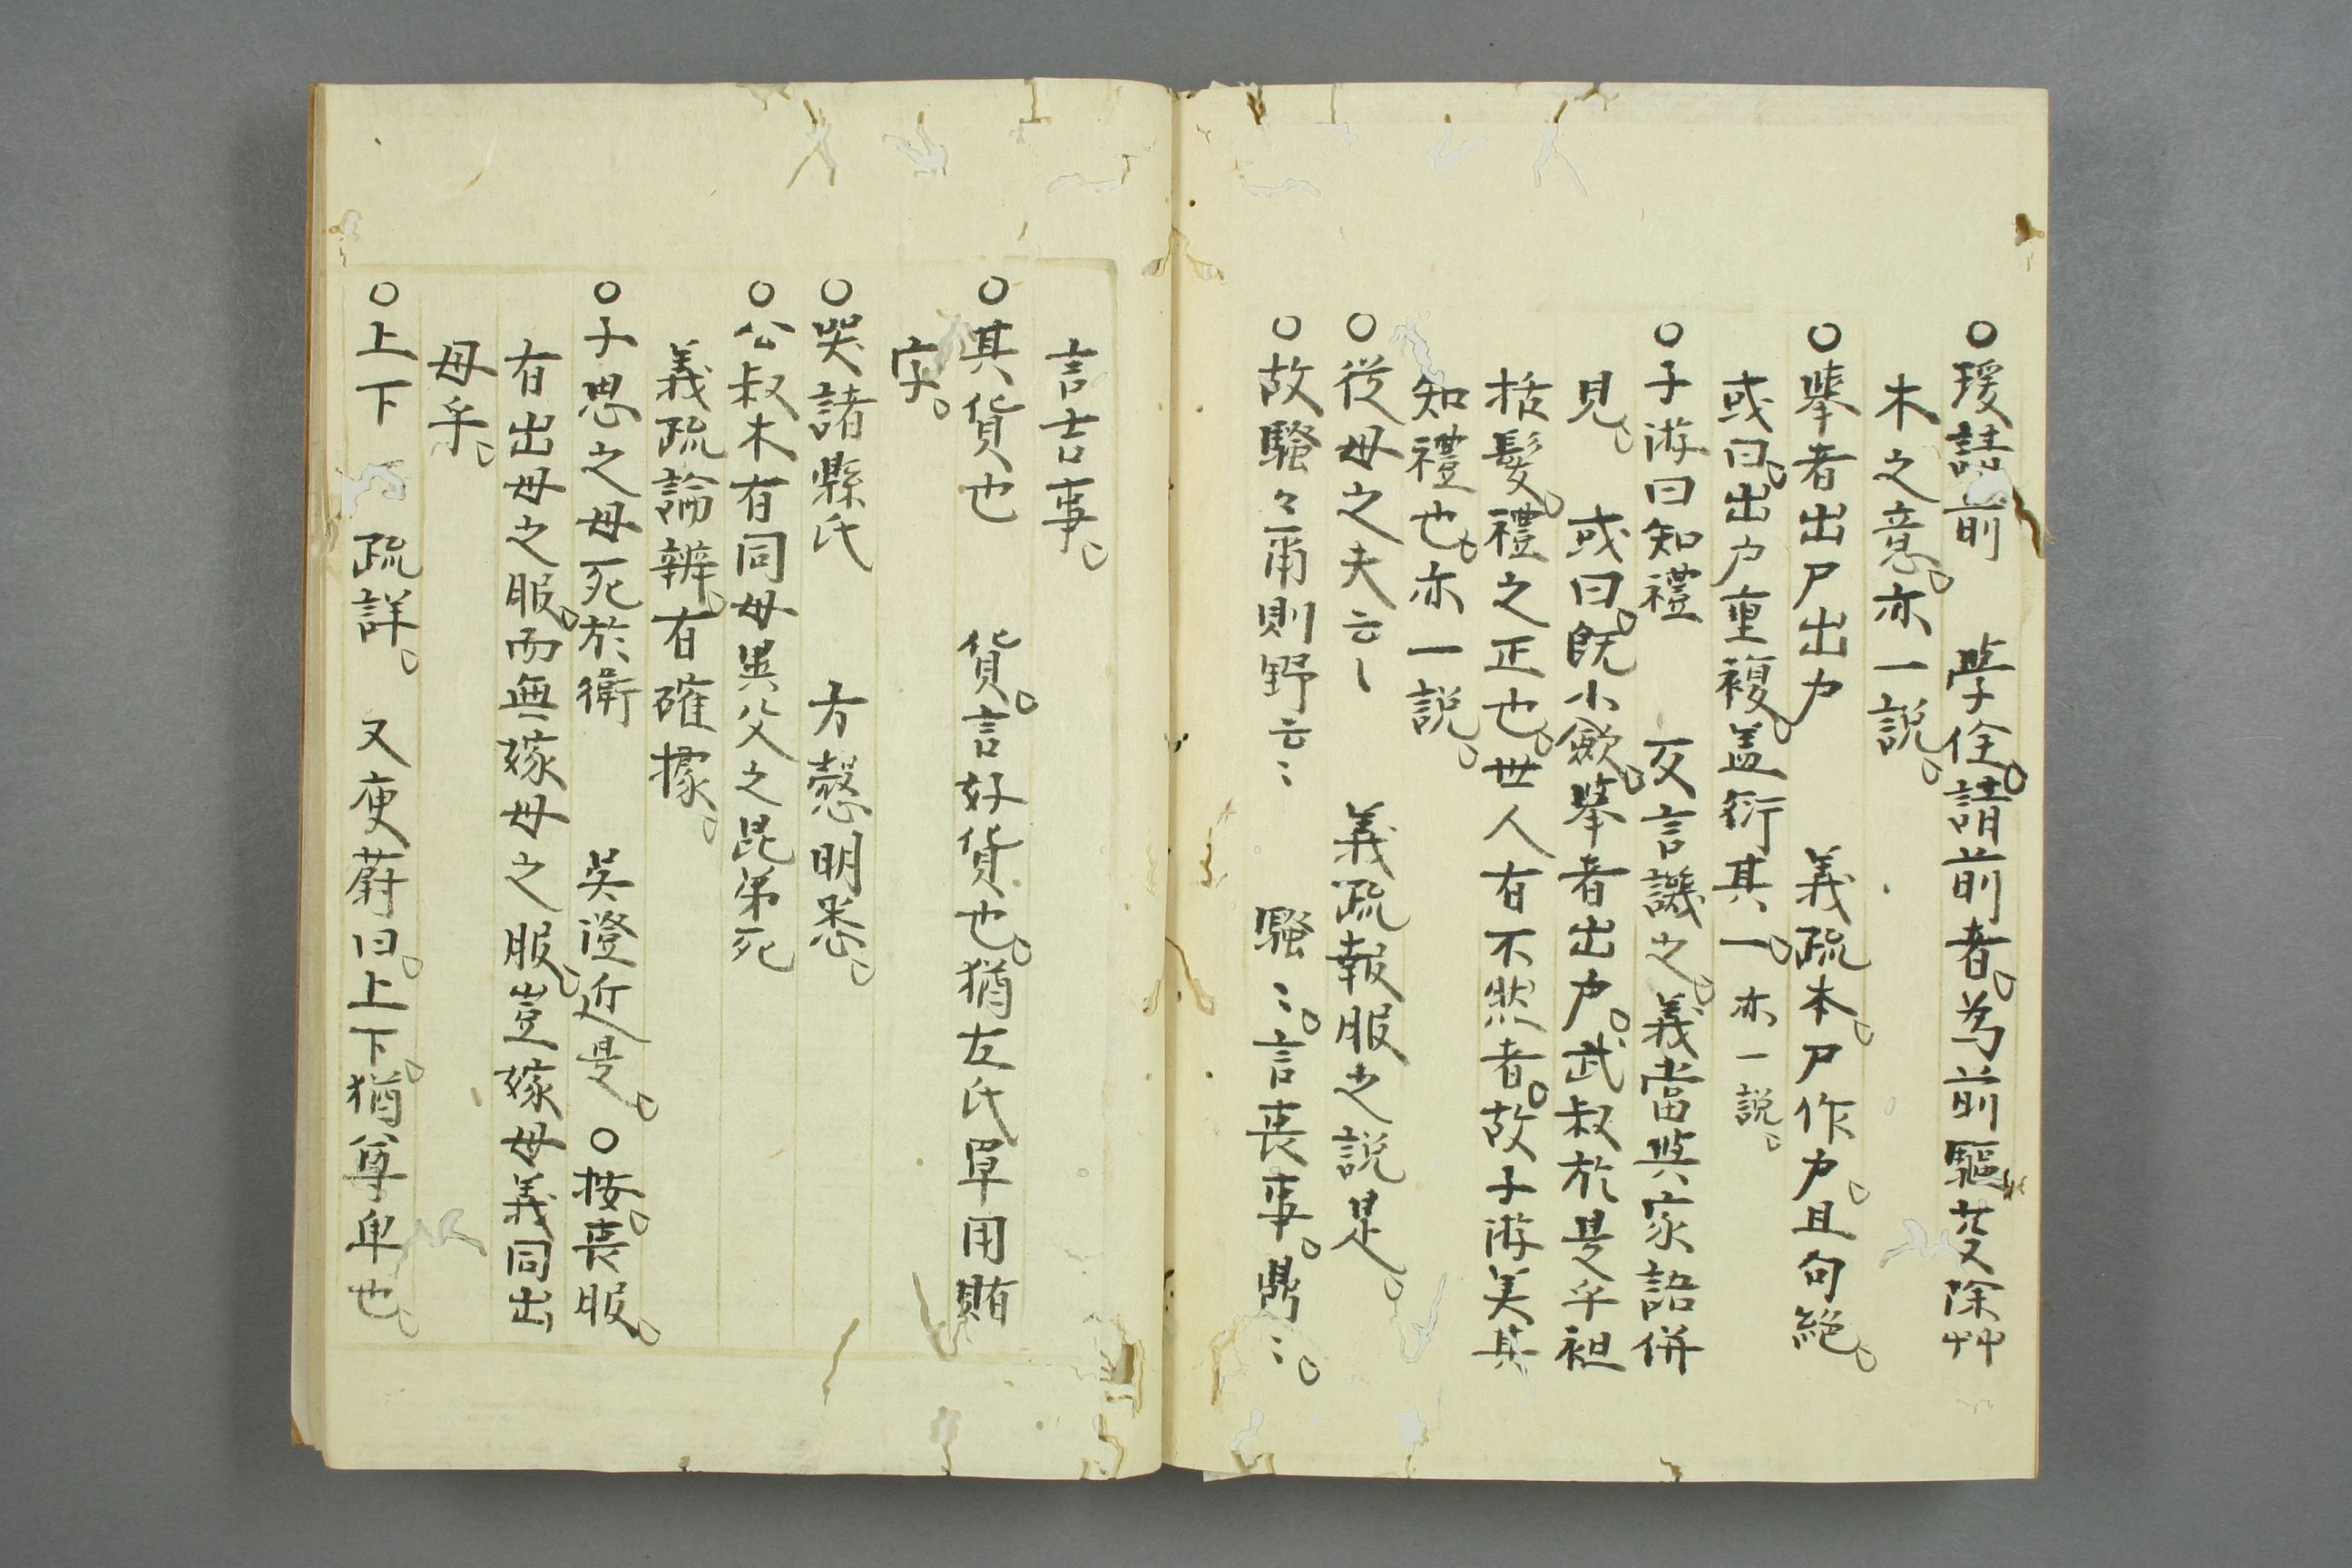 ○瑗請前　學佺。請前者。為前驅芟除艸
木之意。亦一説。
○舉者出尸出户　義疏本。尸作户。且句絶。
或曰。出户重複。盖衍其一。亦一説。
○子游曰知禮　反言譏之。義當與家語併
見。　或曰。既小歛。舉者出户。武叔於是乎袒
括髮。禮之正也。世人有不然者。故子游美其
知禮也。亦一説。
○從母之夫云〻　義疏報服之説是。
○故騷々甭則野云〻　騷〻。言喪事。鼎〻。
言吉事。
○其貨也　貨。言好貨也。猶左氏單用賄
字。
○哭諸縣氏　方慤明悉。
○公叔木有同母異父之昆弟死
義疏論辨。有確據。
○子思之母死於衛　吳澄近是。○按。喪服。
有出母之服。而無嫁母之服。豈嫁母義同出
母乎。
○上下　疏詳。　又庾蔚曰。上下。猶尊卑也。